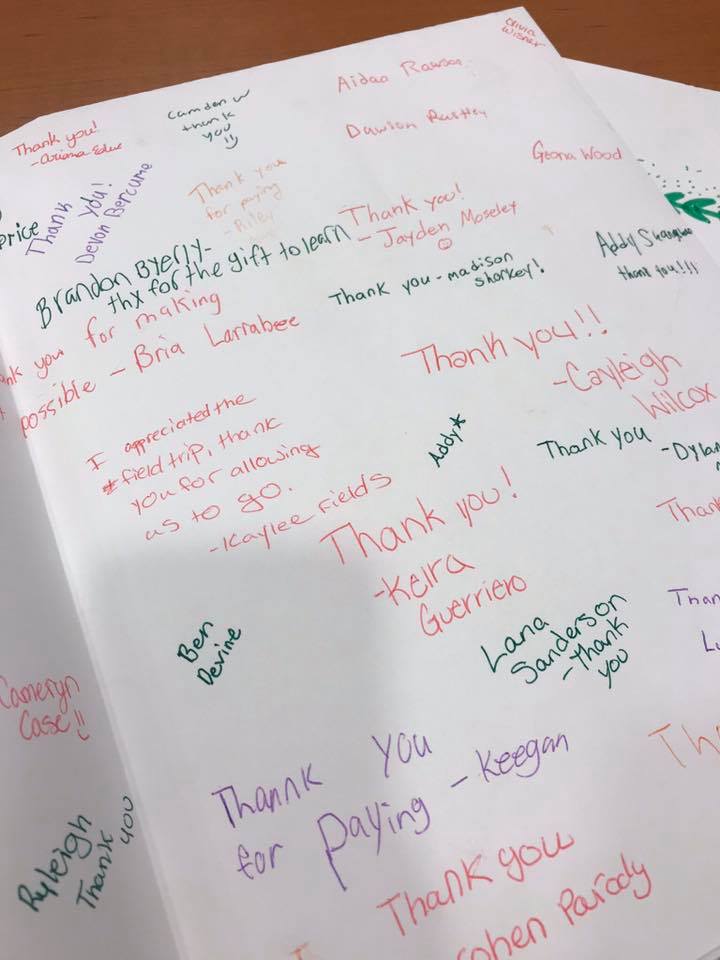 Olivia
Wisner
Thank you!
-Ariana
Camden W
thank
you
Aidan
Dawson
Geona Wood
price
Thank
you!
Devon Bercume
Thank you
for paying
- Riley
Thank you!
- Jayden Moseley
Brandon Byerly-
thx for the gift to learn
Addy
thank you!!!
Thank you - madison
sharkey!
you for making
possible - Bria Larrabee
Thank you!!
-Cayleigh
Wilcox
I appreciated the
field trip, thank
you for allowing
us to go.
-Kaylee Fields
Addy*
Thank you
-Dylan
Thank you!
-Keira
Guerriero
Ben
Devine
Lana
Sanderson
-Thank
you
Cameryn
Case!!
Thannk you
for paying - Keegan
Ryleigh
Thank you
Thank you
Parody